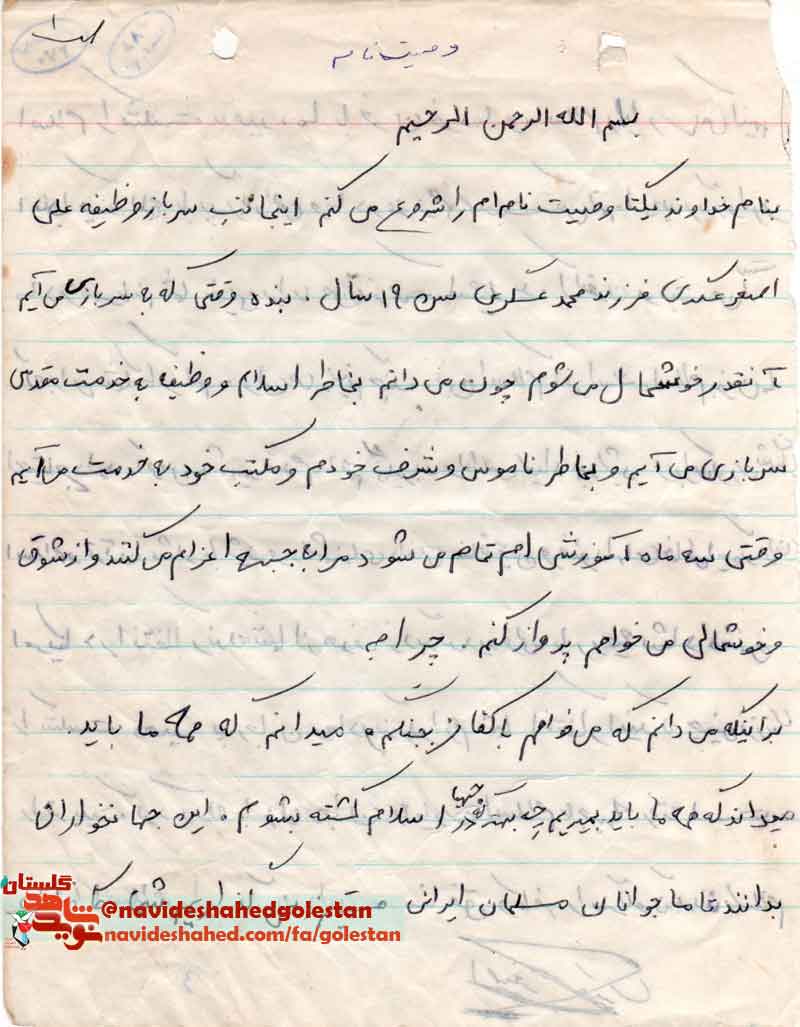 وصیت نامه
بسم الله الرحمن الرحیم
بنام خداوند یکتا وصیت نامه ام را شروع می کنم اینجانب سرباز وظیفه علی
اصغر عسکری فرزند محمد عسکری سن ۱۹ سال . بنده وقتی که به سربازی می آیم
آنقدر خوشحال می شوم چون می دانم بخاطر اسلام و وظیفه به خدمت مقدس
سربازی می آیم و بخاطر ناموس و شرف خودم و مکتب خود به خدمت می آیم
وقتی سه ماه آموزشی ام تمام می شود مرا به جبهه اعزام می کنند و از شوق
و خوشحالی می خواهم پرواز کنم . چرا چه
برای اینکه می دانم که می خواهم با کفار بجنگم و میدانم که همه ما باید .
میداند که همه ما باید بمیریم چه بهتر که در جبهه اسلام کشته بشوم . این جهانخواران
بدانند تا ما جوانان مسلمان ایرانی
نوید شاهد گلستان
@navideshahedgolestan
navideshahed.com/fa/golestan